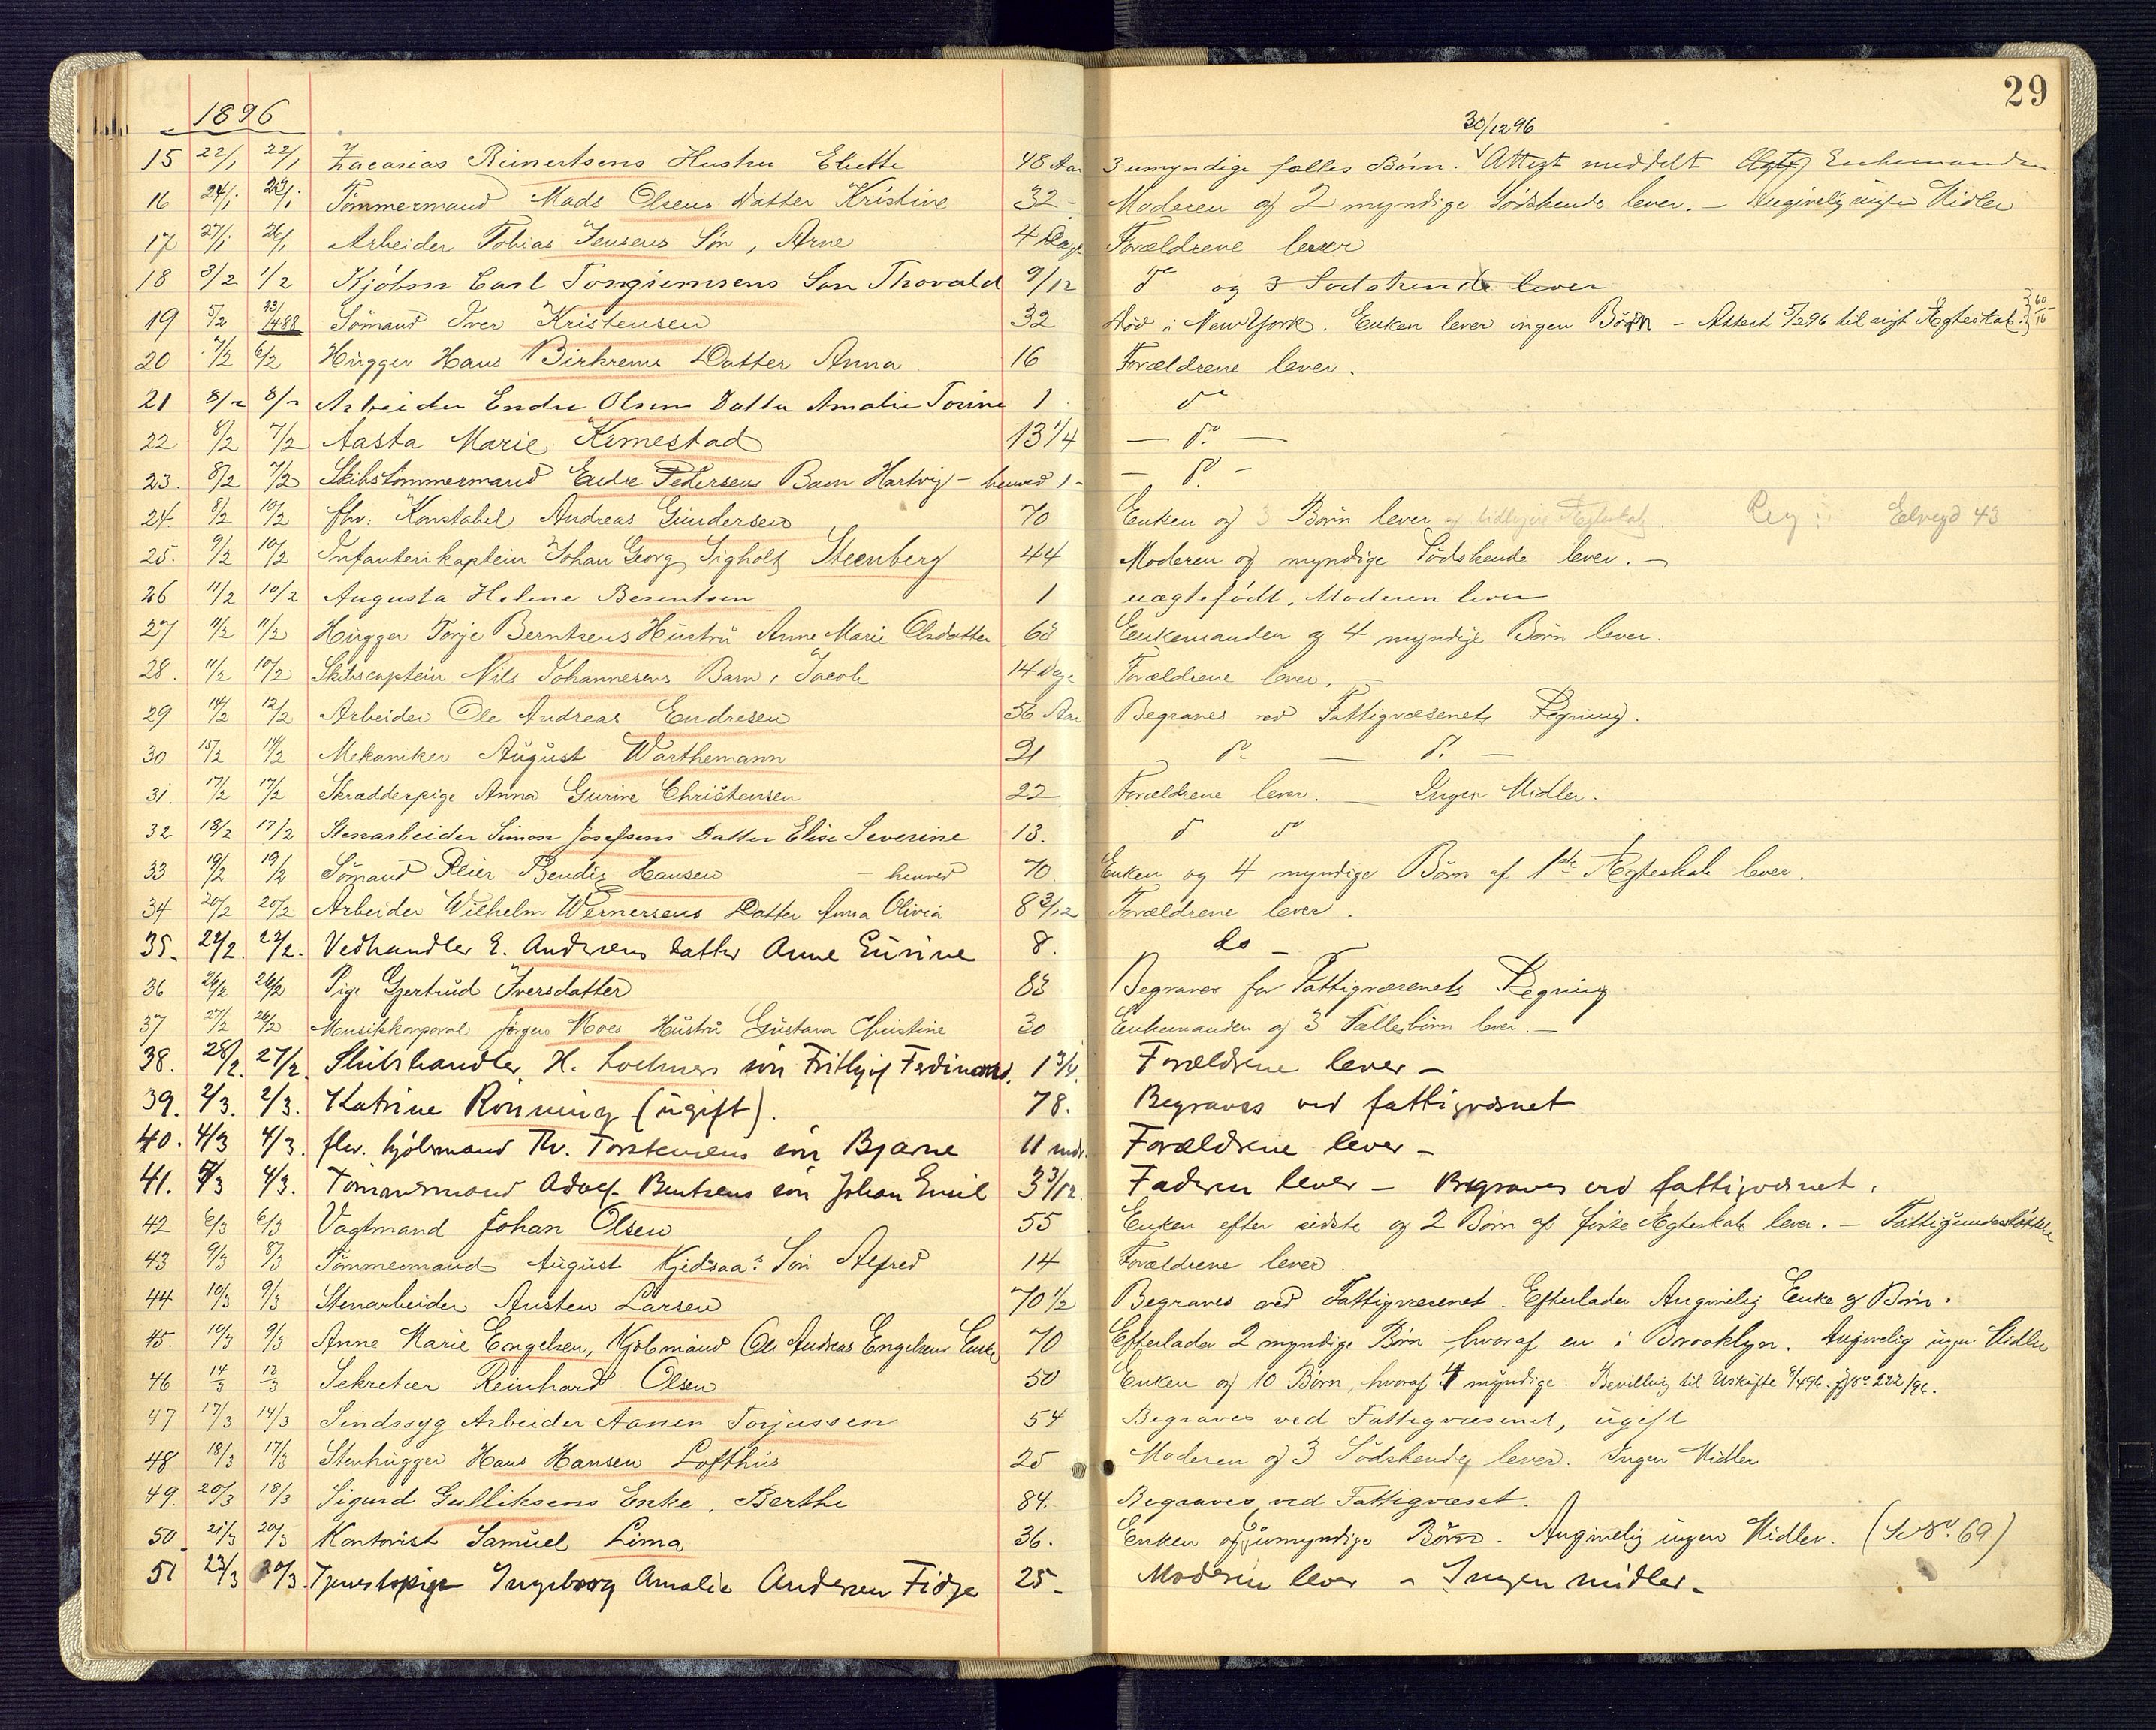 29
1896
30/12 96
15 22/1 22/1 Zacarias Reinertsens Hustru Elette 48 Aar 3 umyndige fælles Børn. Attest meddelt Enkemanden
16 24/1 23/1 Tømmermand Mads Olsens Datter Kristine 32 - Moderen og 2 myndige Södskende lever. - Angivelig ingen Midler
17 27/1 26/1 Arbeider Tobias Jensens Sön, Arne 4 Dage Forældrene lever
18 3/2 1/2 Carl Søn Thorvald 9/12 do og 3 Sødskende lever
19 5/2 23/4 88 Sömand Iver Kristensen 32 Død i New York. Enken lever ingen Börn - Attest 5/2 96 til nyt Ægteskab
20 7/2 6/2 Hugger Hans Birkrems Datter Anna 16 Forældrene lever.
21 8/2 8/2 Arbeider Endre Olsens Datter Amalie Torine 1 do
22 8/2 7/2 Aasta Marie Kimestad 13 1/4 - do -
23. 8/2 7/2 Skibstömmermand Endre Pedersens Barn Hartvig - henved 1 - - do -
24. 8/2 10/2 fhv. Konstabel Andreas Gundersen 70 Enken og 3 Börn lever af tidligere Ægteskab. Elvegd 43
25. 9/2 10/2 Infanterikaptein Johan Georg Sigholt Steenberg 44 Moderen og myndige Södskende lever. -
26 11/2 10/2 Augusta Helene Berentsen 1 uægtefödt. Moderen lever
27 11/2 11/2 Hugger Torje Berntsens Hustru Anne Marie Olsdatter 63 Enkemanden og 4 myndige Börn lever.
28. 11/2 10/2 Skibscaptein Nils Johannesens Barn, Jacob 14 Dage Forældrene lever. -
29 14/2 12/2 Arbeider Ole Andreas Endresen 56 Aar Begraves ved Fattigvæsenets Regning.
30 15/2 14/2 Mekaniker August Warthemann 21 - do - do -
31. 17/2 17/2 Skrædderpige Anna Gurine Christensen 22 Forældrene lever. - Ingen Midler.
32 18/2 17/2 Stenarbeider Simon Josefsens Datter Elise Severine 13. do do
33 19/2 19/2 Sömand Reier Bendix Hansen - henved 70 Enken og 4 myndige Börn af 1ste Ægteskab lever.
34 20/2 20/2 Arbeider Wilhelm Wernersens Datter Anna Olivia 8 3/12 Forældrene lever.
35. 22/2. 22/2. Vedhandler E. Andersens datter Anne Gurine 8. do -
36 26/2 26/2 Pige Gjertrud Iversdatter 83 Begraves for Fattigvæsenets Regning
37 27/2 26/2 Musikkorporal Jörgen Moes Hustru Gustava Christine 30 Enkemanden og 3 Fællesbörn lever. -
38. 28/2. 27/2. H. sön Frithjof Ferdinand. 1 3/4. Forældrene lever -
39. 2/3. 2/3. Katrine Rönning (ugift). 78. Begraves ved fattigvæsnet
40. 4/3 4/3. fhv. hjölmand Th. Torstensens sön Bjarne 11 mdr. Forældrene lever -
41. 5/3 4/3. Tömmermand Adolf Bentsens sön Johan Emil 3 3/12. Faderen lever - Begraves ved fattigvæsnet.
42 6/3 6/3 Vagtmand Johan Olsen 55 Enken efter sidste og 2 Börn af förste Ægteskab lever. - Fattigunderstöttet
43 9/3 8/3 Tömmermand August Kjedsaas Sön Alfred 14 Forældrene lever.
44 10/3 9/3 Stenarbeider Austen Larsen 70 1/2 Begraves ved Fattigvæsenet. Efterlader Angivelig Enke og Börn.
45. 10/3 9/3 Anne Marie Engelsen, Kjölmand Ole Andreas Engelsens Enke 70 Efterlader 2 myndige Börn hvoraf en i Brooklyn. Angivelig ingen Midler
46 14/3 13/3 Sekretær Reinhard Olsen 50 Enken og 10 Börn, hvoraf 4 myndige. Bevilling til Uskifte 8/4 96. No 222/96.
47 17/3 14/3 Sindssyg Arbeider Aanen Torjussen 54 Begraves ved Fattigvæsenet, ugift
48 18/3 17/3 Stenhugger Hans Hansen Lofthus 25 Moderen og 3 Södskende lever. Ingen Midler
49. 20/3 18/3 Sigurd Gulliksens Enke, Berthe 84. Begraves ved Fattigvæset.
50. 21/3 20/3 Kontorist Samuel Lima 36. Enken og 6 umyndige Börn. Angivelig ingen Midler. (Se No. 69)
51 23/3 20/3. Tjenestepige Ingeborg Amalie Andersen Fidje 25 - Moderen lever - Ingen midler -